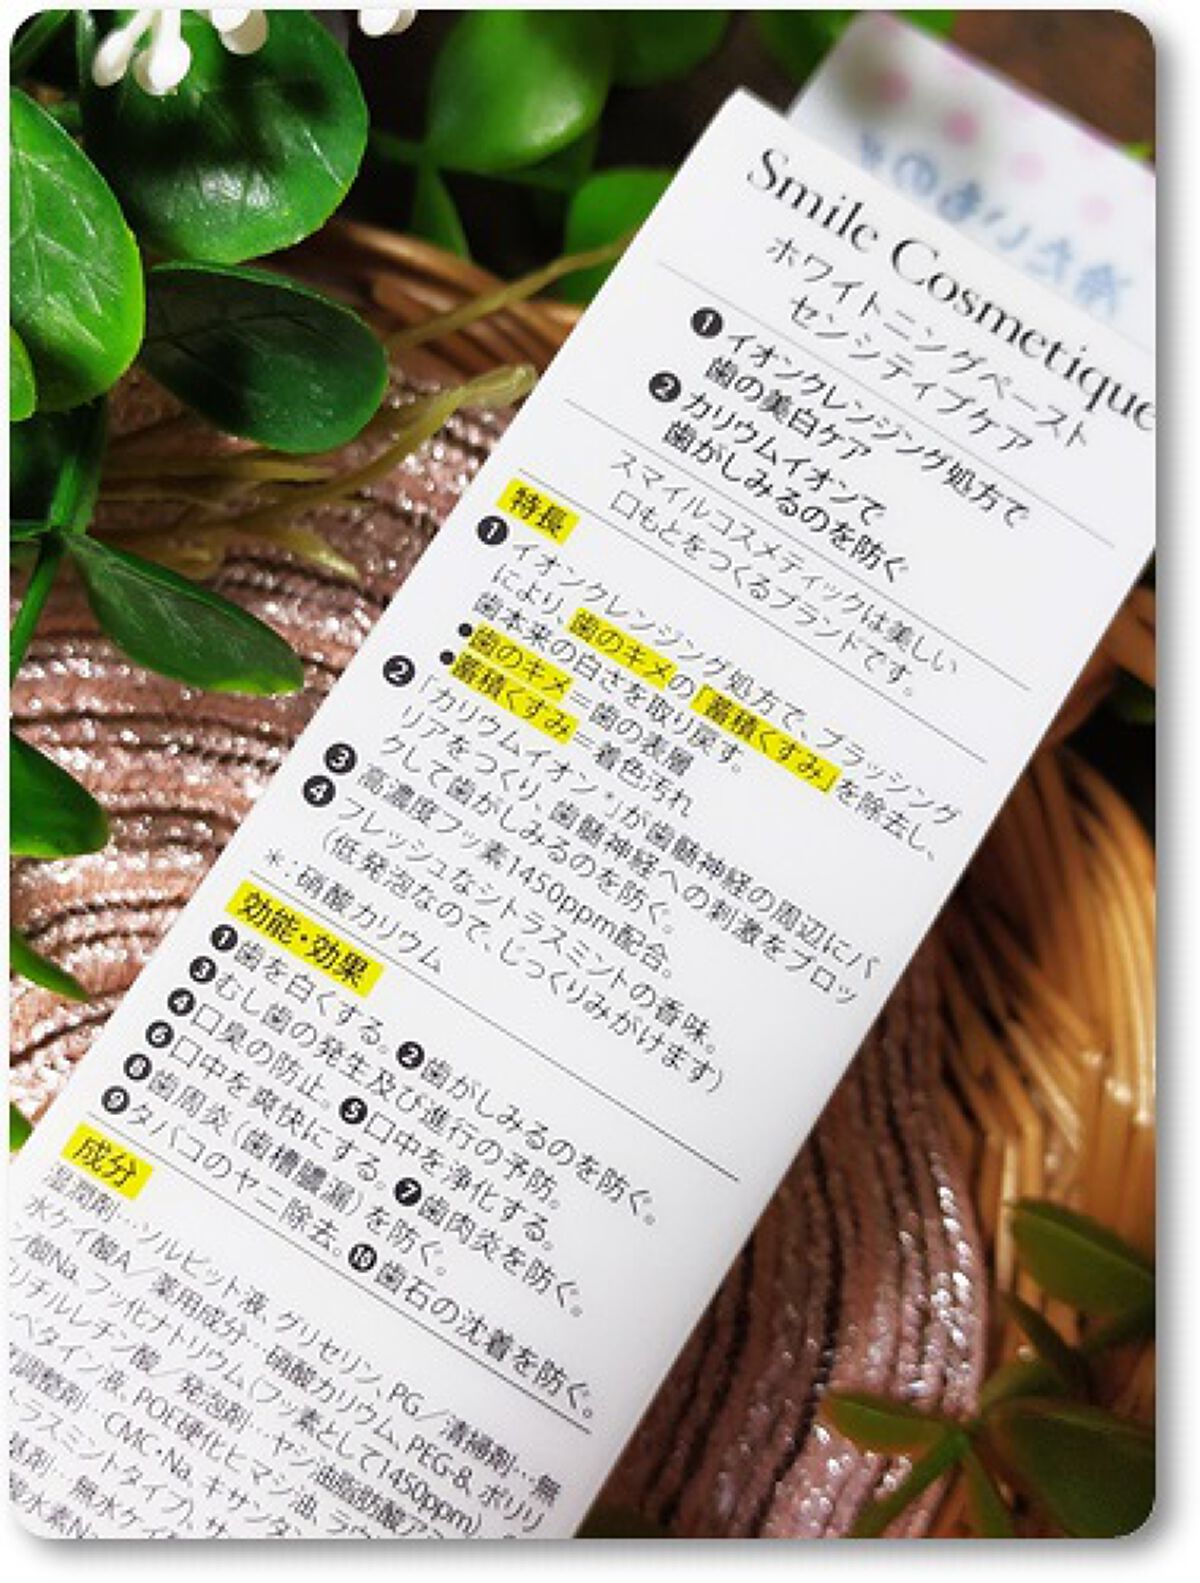 Smile Cosmetique
ホワイトニングペースト
センシティブケア
❶イオンクレンジング処方で
歯の美白ケア
❷カリウムイオンで
歯がしみるのを防ぐ
スマイルコスメティックは美しい
口もとをつくるブランドです。
特長
❶イオンクレンジング処方で、ブラッシング
により、歯のキメの「蓄積くすみ」を除去し、
歯本来の白さを取り戻す。
●歯のキメ＝歯の表層
●蓄積くすみ＝着色汚れ
❷「カリウムイオン*」が歯髄神経の周辺にバ
リアをつくり、歯髄神経への刺激をブロッ
クして歯がしみるのを防ぐ。
❸高濃度フッ素1450ppm配合。
❹フレッシュなシトラスミントの香味。
（低発泡なので、じっくりみがけます）
＊：硝酸カリウム
効能・効果
❶歯を白くする。❷歯がしみるのを防ぐ。
❸むし歯の発生及び進行の予防。
❹口臭の防止。❺口中を浄化する。
❻口中を爽快にする。❼歯肉炎を防ぐ。
❽歯周炎（歯槽膿漏）を防ぐ。
❾タバコのヤニ除去。❿歯石の沈着を防ぐ。
成分
湿潤剤…ソルビット液、グリセリン、PG／清掃剤…無
水ケイ酸A／薬用成分…硝酸カリウム、PEG-8、ポリリ
ン酸Na、フッ化ナトリウム(フッ素として1450ppm)、
リチルレチン酸／発泡剤…ヤシ油脂肪酸ア
ベタイン液、POE硬化ヒマシ油、ラウ
調整剤…CMC・Na、キサンタン
トラスミントタイプ)、サ
基剤…無水ケイ
炭水素Na